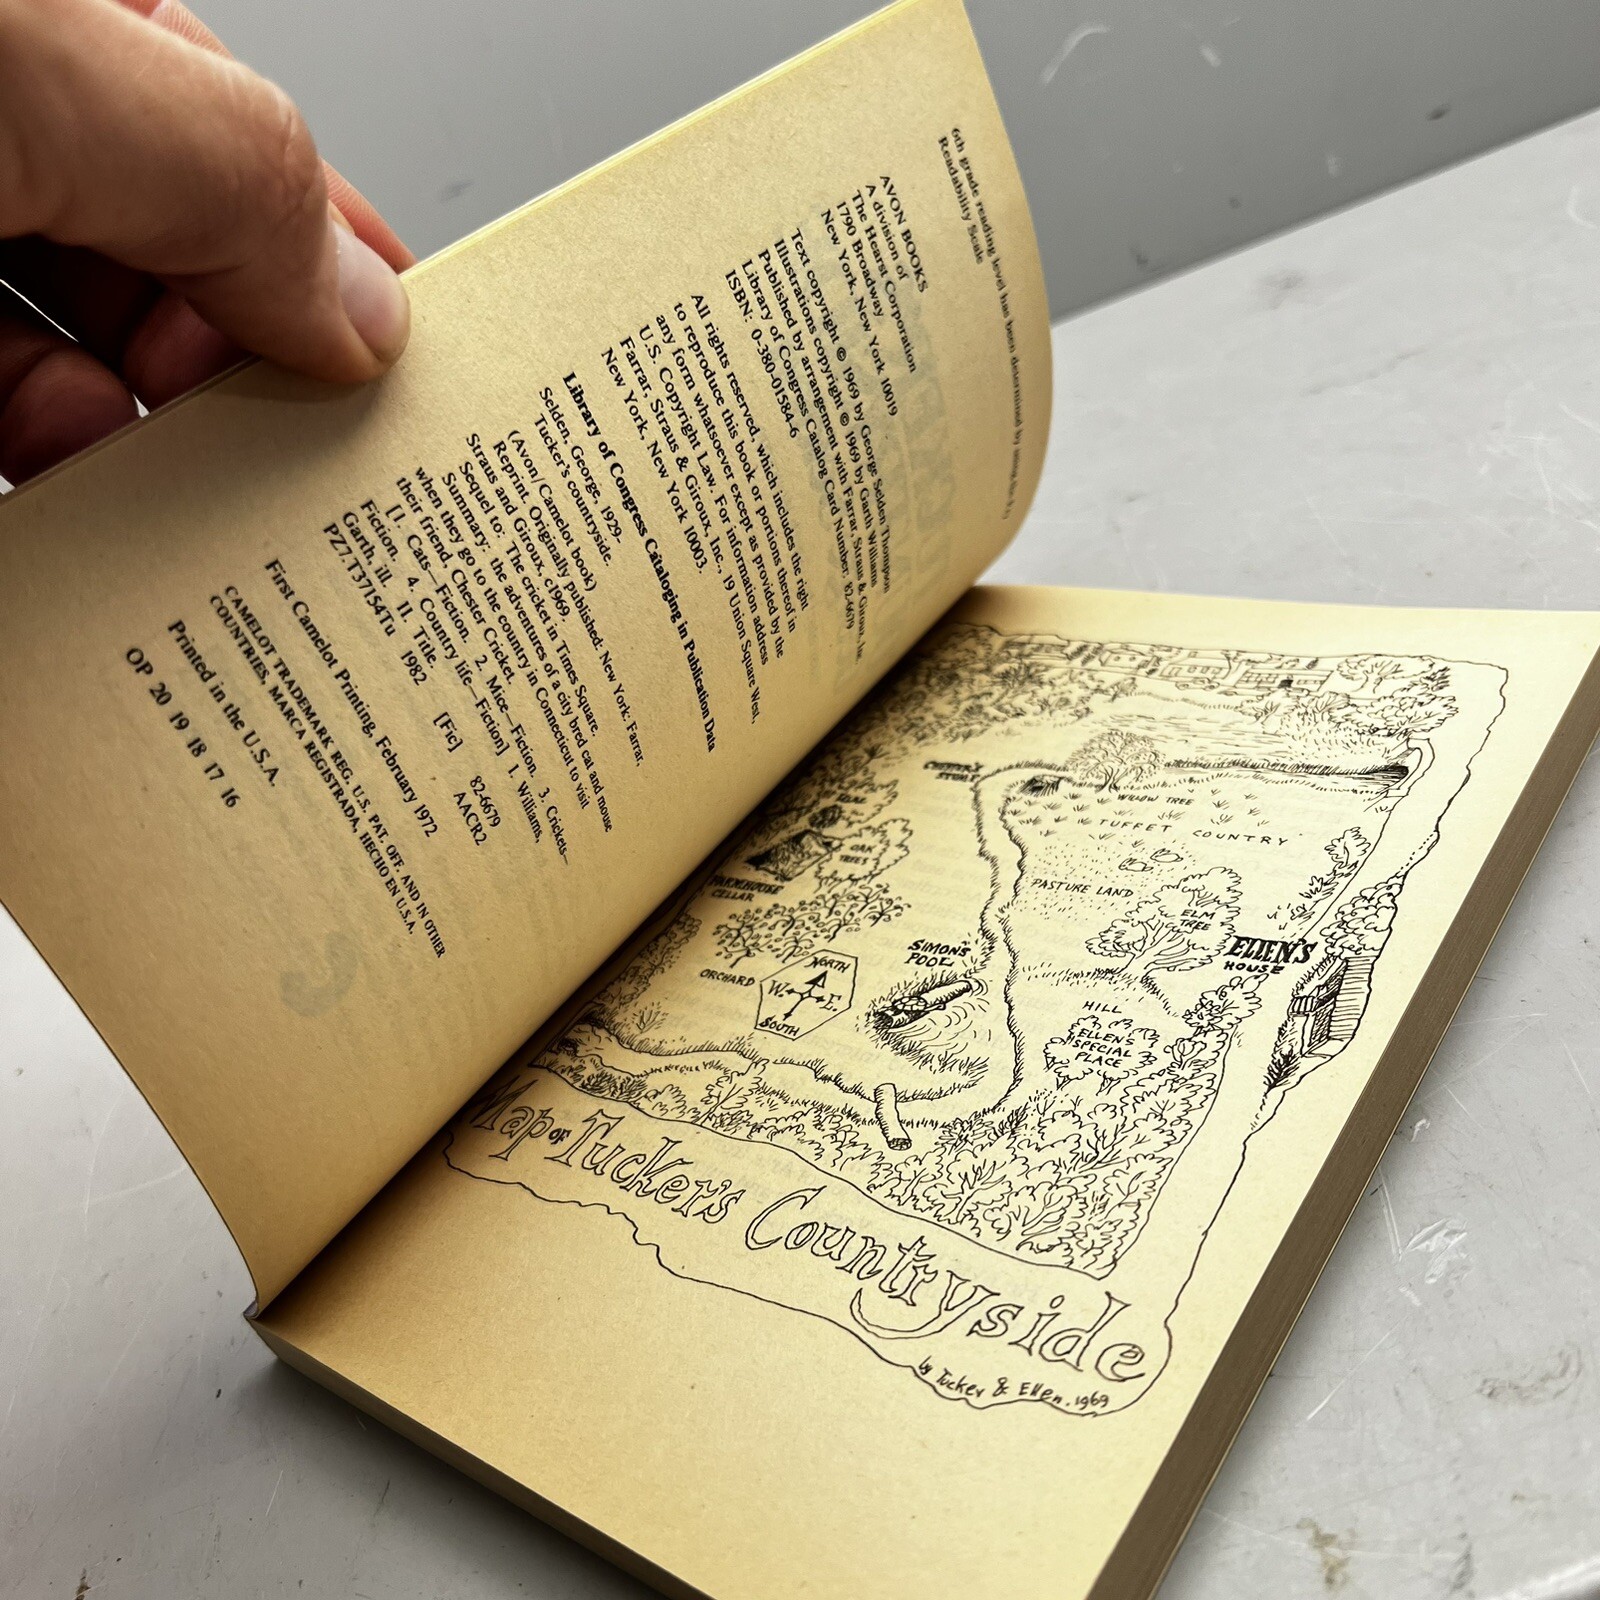 6th grade reading level has been determined by using the Fry
Readability Scale
AVON BOOKS
A division of
The Hearst Corporation
1790 Broadway
New York, New York 10019
Text copyright © 1969 by George Selden Thompson
Illustrations copyright © 1969 by Garth Williams
Published by arrangement with Farrar, Straus & Giroux, Inc.
Library of Congress Catalog Card Number: 82-6679
ISBN: 0-380-01584-6
All rights reserved, which includes the right
to reproduce this book or portions thereof in
any form whatsoever except as provided by the
U.S. Copyright Law. For information address
Farrar, Straus & Giroux, Inc., 19 Union Square West,
New York, New York 10003.
Library of Congress Cataloging in Publication Data
Selden, George, 1929-
Tucker's countryside.
(Avon/Camelot book)
Reprint. Originally published: New York: Farrar,
Straus and Giroux, c1969.
Sequel to: The cricket in Times Square.
Summary: the adventures of a city bred cat and mouse
when they go to the country in Connecticut to visit
their friend, Chester Cricket.
[1. Cats—Fiction. 2. Mice—Fiction. 3. Crickets—
Fiction. 4. Country life—Fiction] I. Williams,
Garth, ill. II. Title.
PZ7.T37154Tu 1982 [Fic] 82-6679
AACR2
First Camelot Printing, February 1972
CAMELOT TRADEMARK REG. U.S. PAT. OFF. AND IN OTHER
COUNTRIES, MARCA REGISTRADA, HECHO EN U.S.A.
Printed in the U.S.A.
OP 20 19 18 17 16
CHESTER'S
STUMP
WILLOW TREE
TUFFET COUNTRY
OAK
TREES
PASTURE LAND
FARMHOUSE
CELLAR
ELM
TREE
ELLEN'S
HOUSE
SIMON'S
POOL
ORCHARD
NORTH
W. E.
SOUTH
HILL
ELLEN'S
SPECIAL
PLACE
Map of Tucker's Countryside
by Tucker & Ellen. 1969